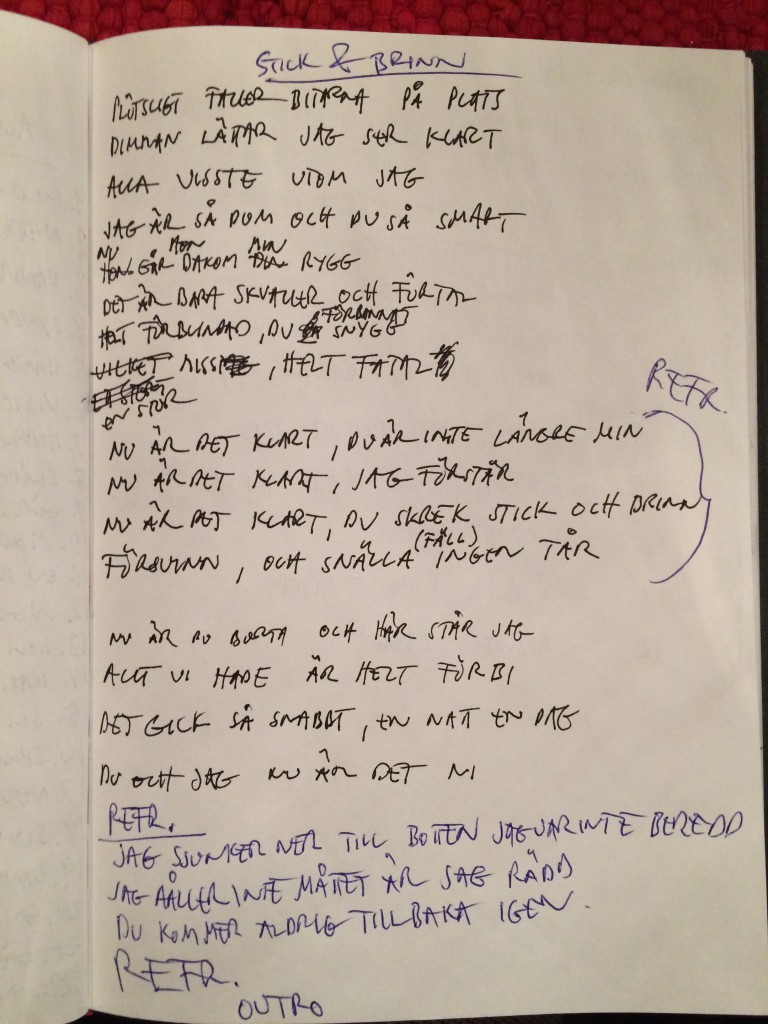 STICK & BRINN
PLÖTSLIGT FALLER BITARNA PÅ PLATS
DIMMAN LÄTTAR JAG SER KLART
ALLA VISSTE UTOM JAG
JAG ÄR SÅ DUM OCH DU SÅ SMART
NU HON MIN
GÅR BAKOM RYGG
DET ÄR BARA SKVALLER OCH FÖRTAL
FÖRBANNAT
HELT FÖRBLINDAD, DU SNYGG
VILKET MISS, HELT FATAL
EN STÖR
REFR.
NU ÄR DET KLART, DU ÄR INTE LÄNGRE MIN
NU ÄR DET KLART, JAG FÖRSTÅR
NU ÄR DET KLART, DU SKREK STICK OCH BRINN
FÖRSVINN, OCH SNÄLLA (FÄLL) INGEN TÅR
NU ÄR DU BORTA OCH HÄR STÅR JAG
ALLT VI HADE ÄR HELT FÖRBI
DET GICK SÅ SNABBT, EN NAT EN DAG
DU OCH JAG NU ÄR DET NI
REFR.
JAG SJUNKER NER TILL BOTTEN JAG VAR INTE BEREDD
JAG HÅLLER INTE MÅTTET ÄR JAG RÄDD
DU KOMMER ALDRIG TILLBAKA IGEN.
REFR.
OUTRO